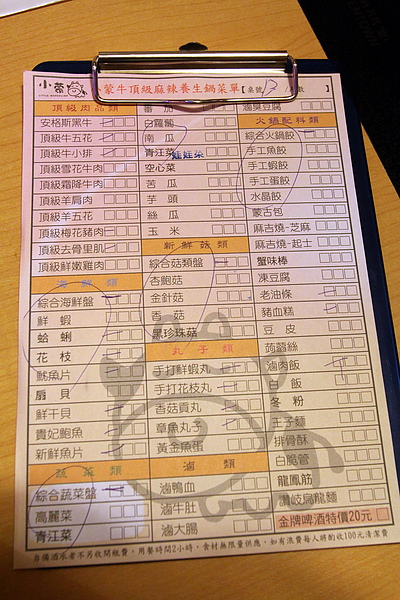 小蒙牛
小蒙牛頂級麻辣養生鍋菜單【桌號13 / 數 】
頂級肉品類
安格斯黑牛
頂級牛五花
頂級牛小排
頂級雪花牛肉
頂級霜降牛肉
頂級羊肩肉
頂級羊五花
頂級梅花豬肉
頂級去骨里肌
頂級鮮嫩雞肉
海鮮類
綜合海鮮盤
鮮蝦
蛤蜊
花枝
魷魚片
扇貝
鮮干貝
貴妃鮑魚
新鮮魚片
蔬菜類
綜合蔬菜盤
高麗菜
青江菜
番茄
白蘿蔔
南瓜
青江菜 娃娃菜
空心菜
苦瓜
芋頭
絲瓜
玉米
新鮮菇類
綜合菇類盤
杏鮑菇
金針菇
香菇
黑珍珠菇
丸子類
手打鮮蝦丸
手打花枝丸
香菇貢丸
章魚丸子
黃金魚蛋
滷類
滷鴨血
滷牛肚
滷大腸
滷臭豆腐
火鍋配料類
綜合火鍋餃
手工魚餃
手工蝦餃
手工蛋餃
水晶餃
蒙古包
麻吉燒-芝麻
麻吉燒-起士
蟹味棒
凍豆腐
老油條
豬血糕
豆皮
蒟蒻絲
滷肉飯
白飯
冬粉
王子麵
排骨酥
白脆管
龍鳳筋
讚岐烏龍麵
金牌啤酒特價20元
自備酒水者不另收開瓶費,用餐時間2小時,食材無限量供應,如有浪費每人將酌收100元清潔費